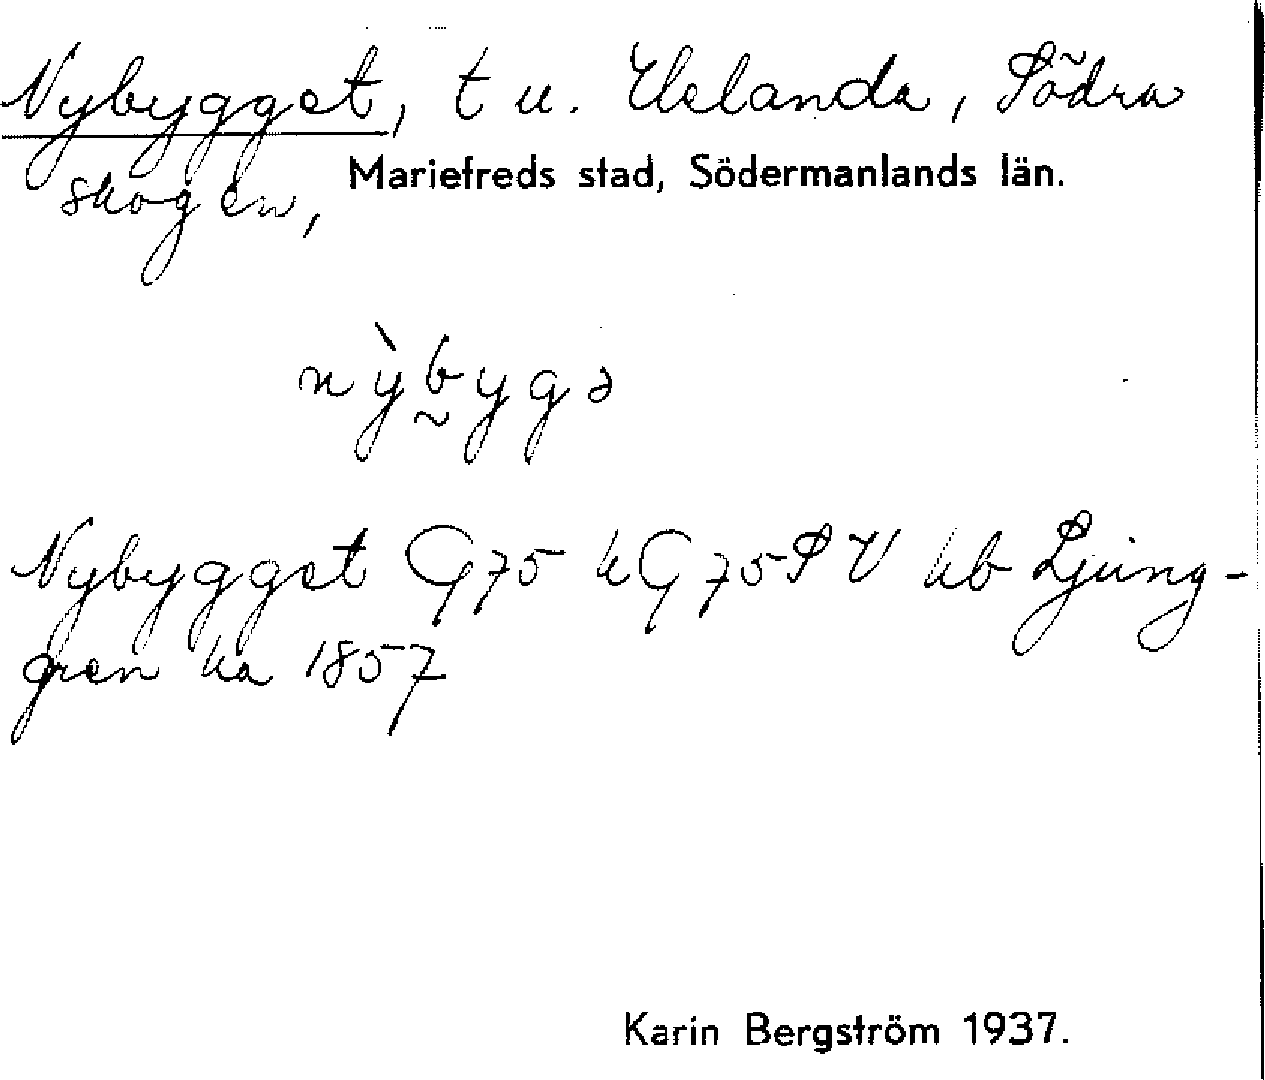 Nybygget, t u. Helanda, Södra
skogen, Mariefreds stad, Södermanlands län.
nỳb̰ygə
Nybygget G75 kG75 S V kb Ljung-
gren ka 1857
Karin Bergström 1937.